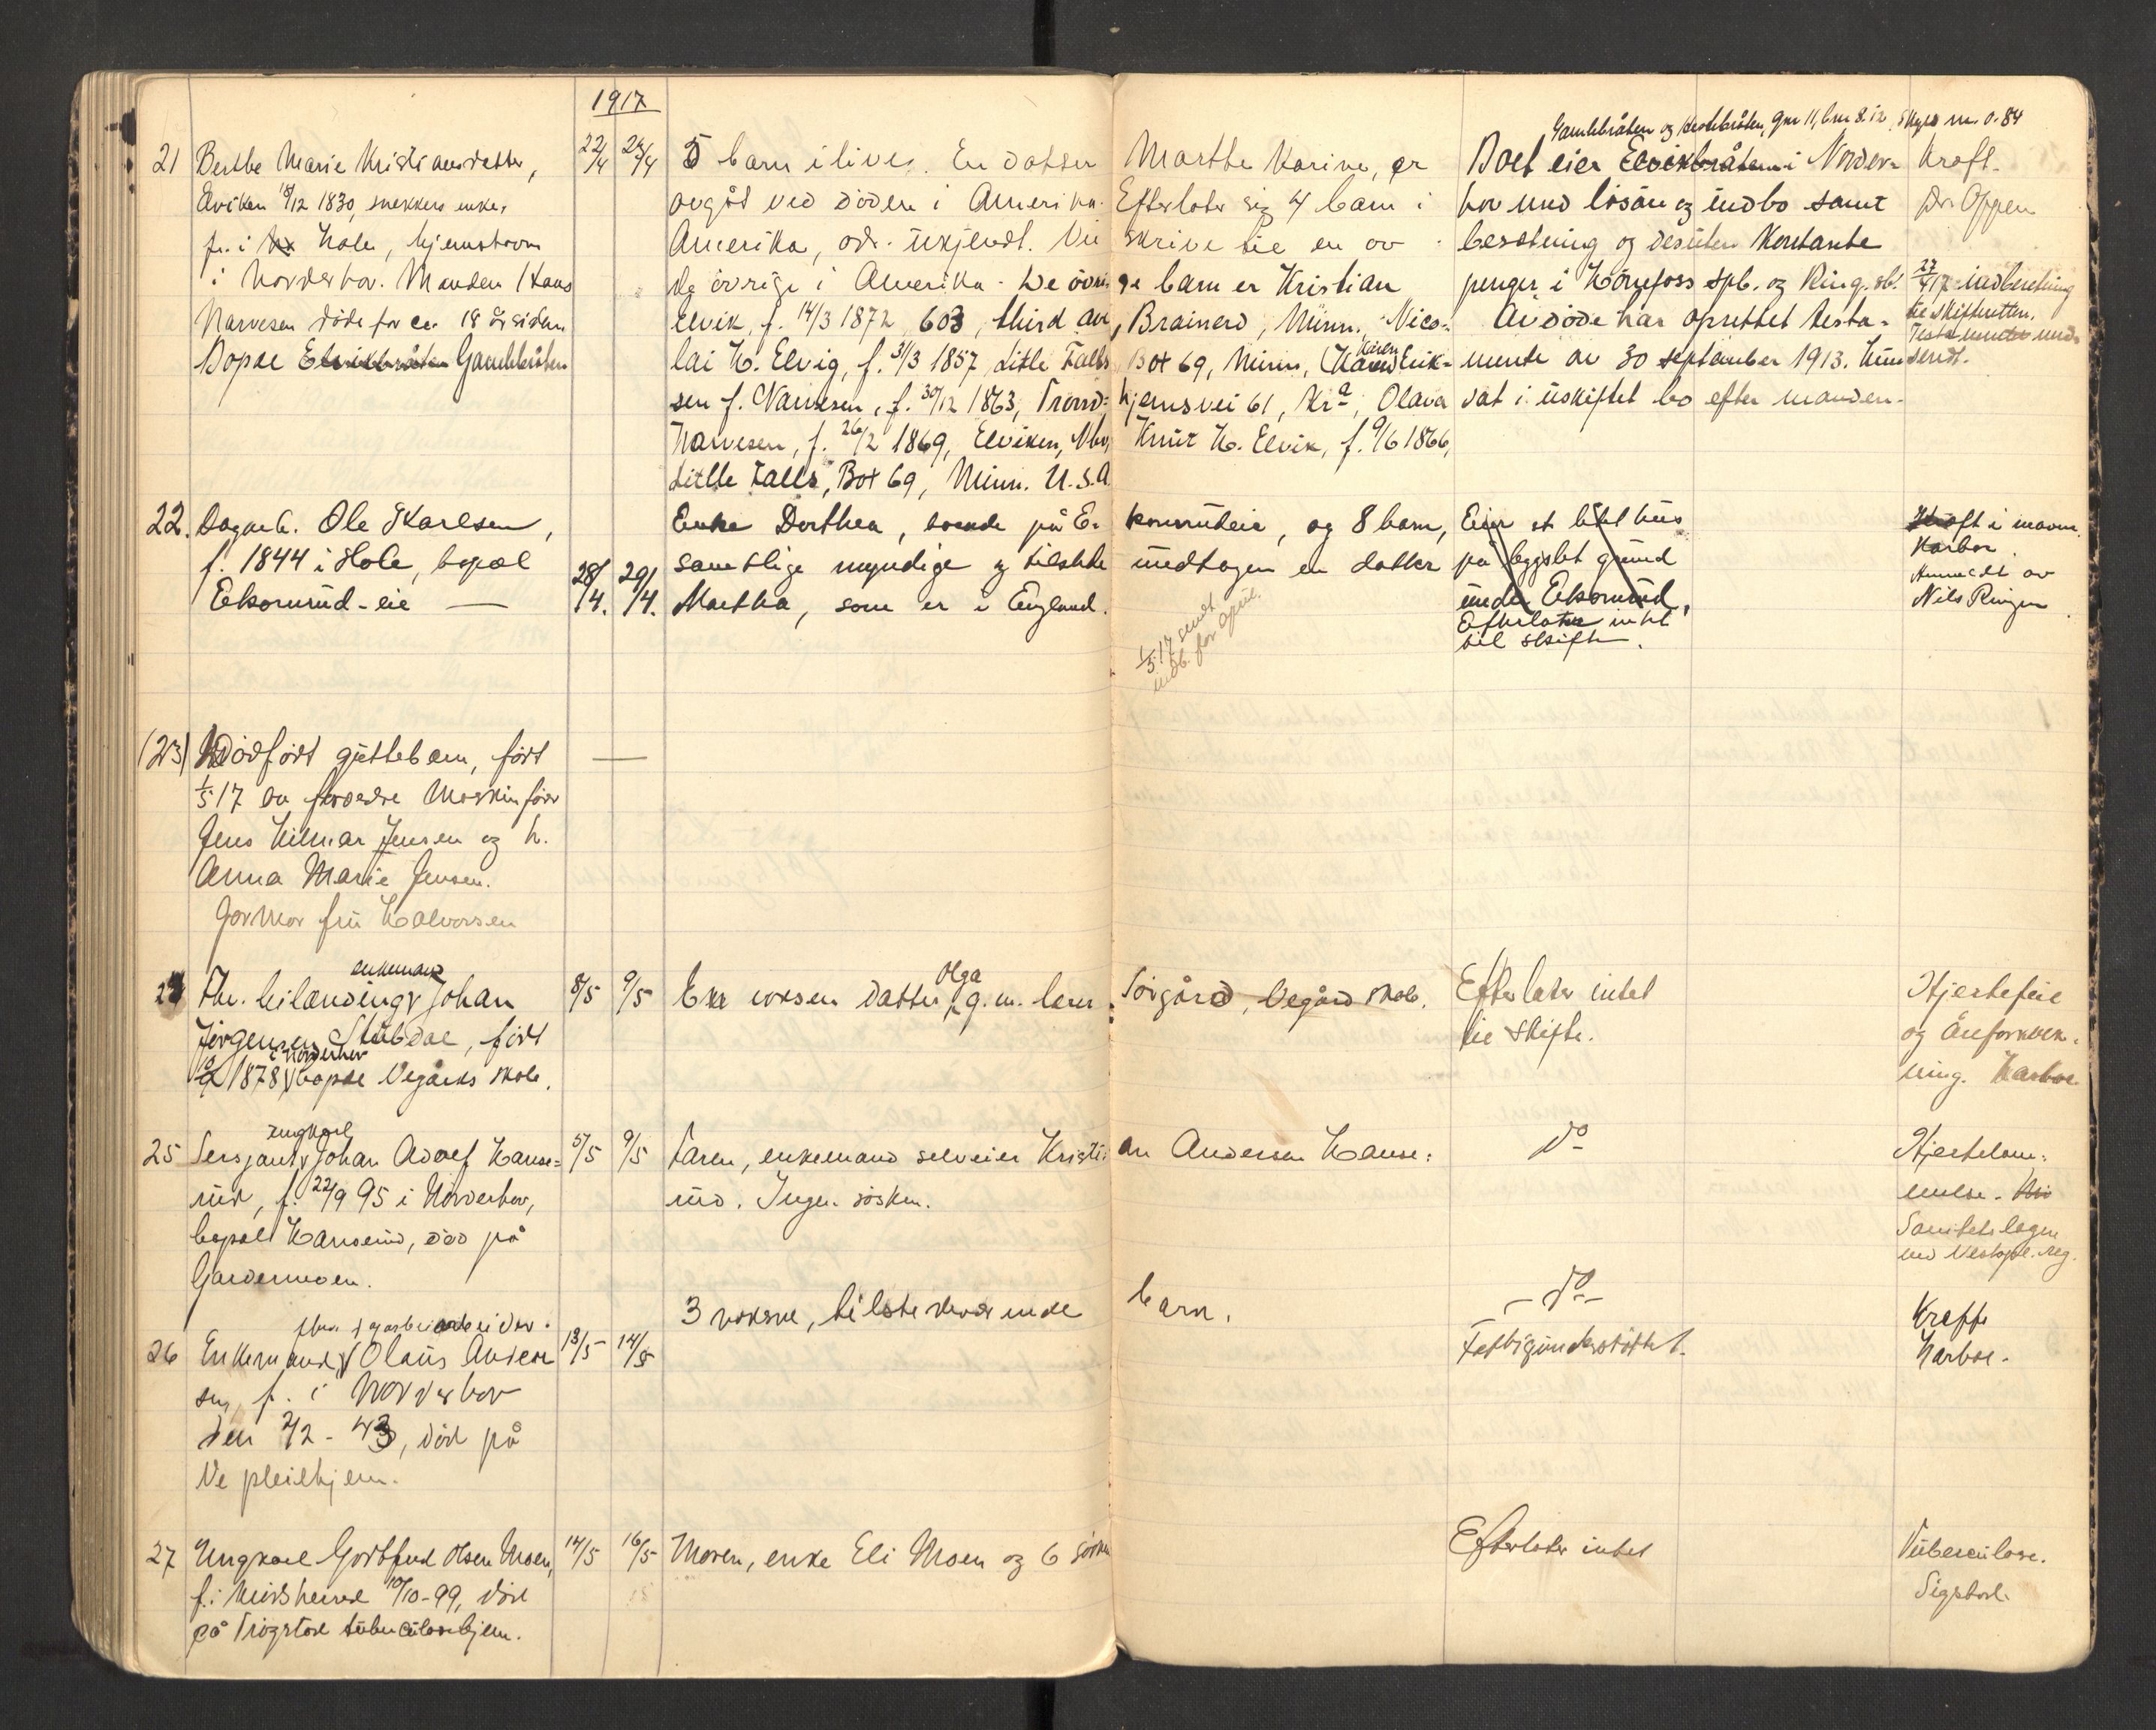 1917
21 Berthe Marie Kristiansdatter,
Eviken 18/12 1830, snekkers enke,
f. i Hole, hjemstavn
i Norderhov. Manden Hans
Narvesen døde for ca. 18 år siden
Bopæl Elvikbråten Gamlebråten
22/4 24/4
5 barn i live. En datter Marthe Karine, er
avgåt ved døden i Amerika. Efterlater sig 4 barn i
Amerika, adr. ukjendt. Vil skrive til en av
de øvrige i Amerika. De øvrige barn er Kristian
Elvik, f. 14/3 1872, 603, third av, Brainerd, Minn. Nico-
lai H. Elvig, f. 31/3 1857 Litle Falls, Box 69, Minn, Karen Erik-
sen f. Narvesen, f. 30/12 1863, Trond- hjemsvei 61, Kr.a, Olava
Narvesen, f. 26/2 1869, Elviken, Nhov, Knut H. Elvik, f. 9/6 1866,
Little Falls, Box 69, Minn. U.S.A.
Gamlebråten og Kestebråten, gnr 11, bnr 8.12, skyld m. 0.84
Boet eier Elvikbråten i Norder-
hov med løsøre og indbo samt
besetning og desuten kontante
penger i Hønefoss spb. og Ring. sb.
Avdøde har oprettet testa-
mente av 30 september 1913. Hun
sat i uskiftet bo efter manden.
Kræft.
Dr. Oppen
27/4 17 indberetning
til skifteretten.
Testamentet med-
sendt.
22. Dagarb. Ole Karlsen,
f. 1844 i Hole, bopæl
Ekornrud-eie —
28/4. 29/4.
Enke Dorthea, boende på E- kornrudeie, og 8 barn,
samtlige myndige og tilstede undtagen en datter
Martha, som er i England.
1/5 17 sendt
indb. for april.
Eier et litet hus
på bygslet grund
under Ekornrud,
Efterlater intet
til skifte.
Kræft i maven.
Harboe.
Anmeldt av
Nils Ringen
(23) Dødfødt guttebarn, født
1/5 17 av forældre Maskinfører
Jens Hilmar Jensen og h.
Anna Marie Jensen.
Jormor fru Halvorsen
—
24 Fhv. leilending enkemand Johan
Jørgensen Stubdal, født
1878 i Norderhov bopæl Vegårds skole.
8/5 9/5
En voksen datter Olga g.m. lærer Sørgård, Vegård skole.
Efterlater intet
til skifte.
Hjertefeil
og Åreforkalk-
ning. Harboe.
25 Sersjant, ungkarl Johan Adolf Hanse-
rud, f. 22/9 95 i Norderhov,
bopæl Hanserud, død på
Gardermoen.
5/5 9/5
Faren, enkemand selveier Kristi- an Andersen Hanse-
rud. Ingen søsken.
do
Hjertelam-
melse.
Sanitetslægen
ved Vestopl. reg.
26 Enkemand, fhv. arbeider Olaus Ander-
sen, f. i Norderhov
den 2/2 - 43, död på
Ve pleiehjem.
13/5 14/5
3 voksne, tilstedeværende barn.
- do -
Fattigunderstöttet.
Kræft
Harboe.
27 Ungkarl Gottfred Olsen Moen,
f. i Modsheired 10/10-99, död
på Trögstad tuberculosehjem.
14/5 16/5
Moren, enke Eli Moen og 6 søsken
Efterlater intet
Tuberculose.
Sigstad.